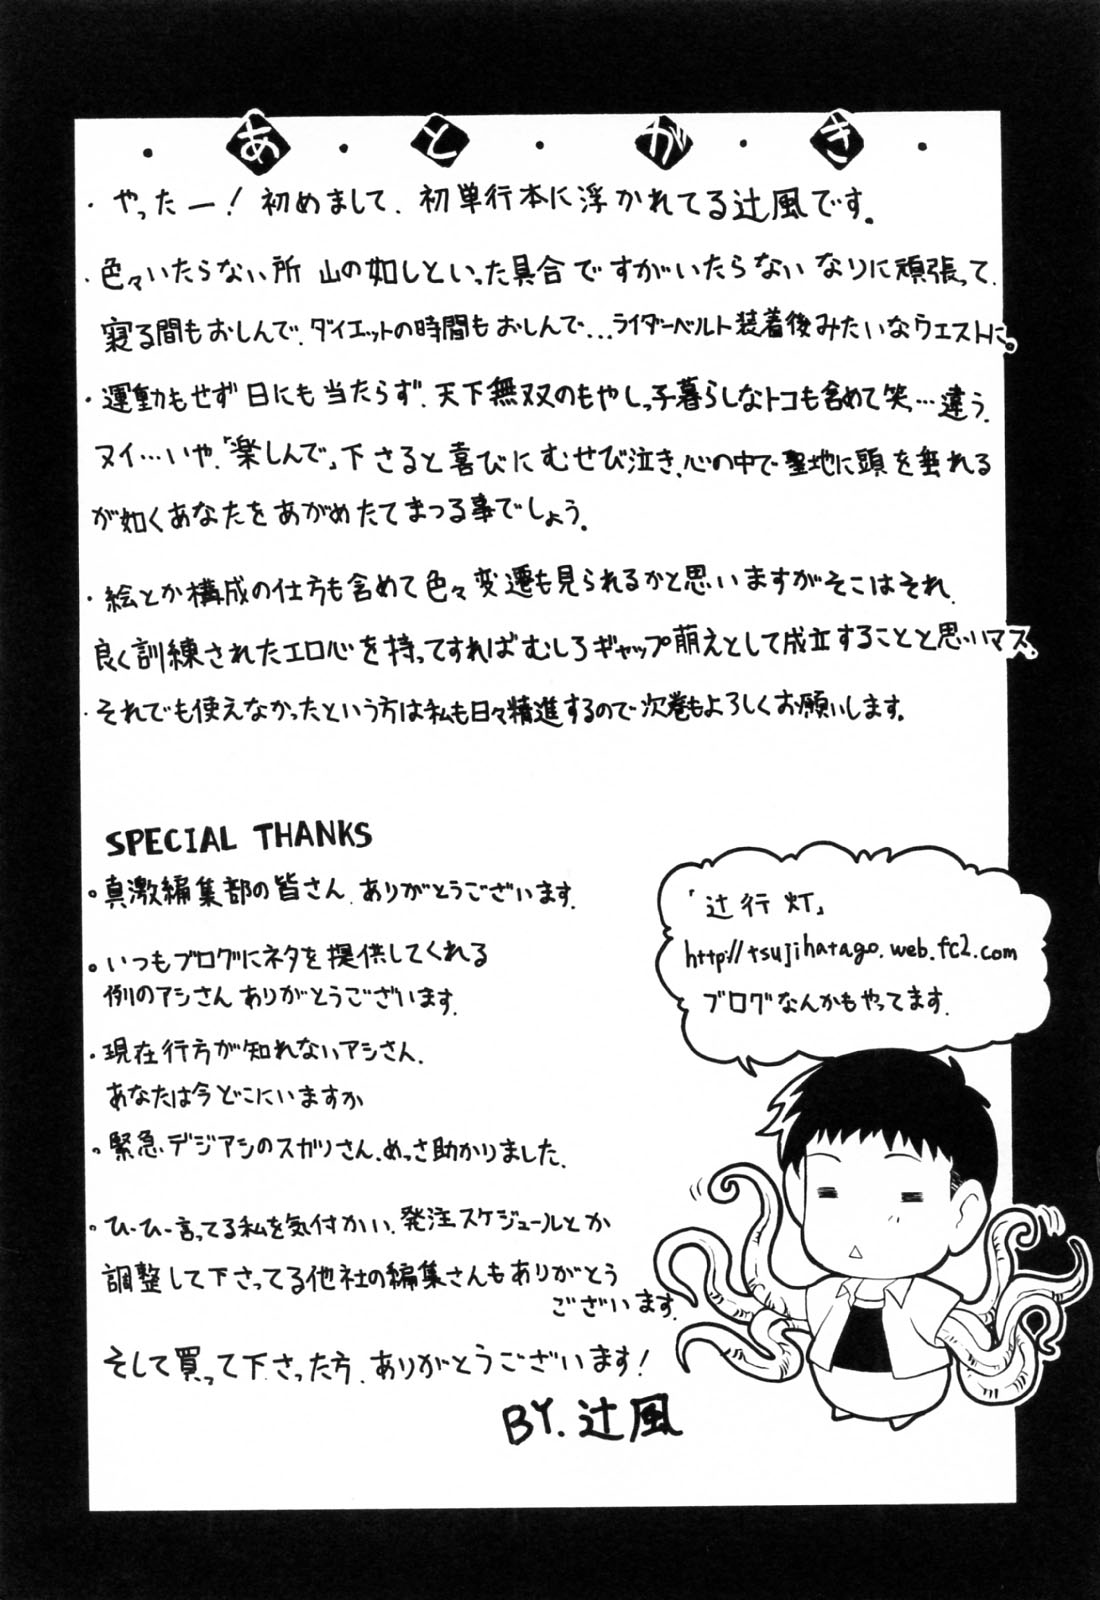 あ・と・が・き
・やったー！初めまして、初単行本に浮かれてる辻風です。
・色々いたらない所 山の如しといった具合ですがいたらないなりに頑張って、
寝る間もおしんで、ダイエットの時間もおしんで...ライダーベルト装着後みたいなウエストに。
・運動もせず日にも当たらず、天下無双のもやしっ子暮らしなトコも含めて笑…違う、
ヌイ…いや、「楽しんで」下さると喜びにむせび泣き、心の中で聖地に頭を垂れる
が如くあなたをあがめたてまつる事でしょう。
・絵とか構成の仕方も含めて色々変遷も見られるかと思いますがそこはそれ、
良く訓練されたエロ心を持ってすればむしろギャップ萌えとして成立することと思いマス。
・それでも使えなかったという方は私も日々精進するので次巻もよろしくお願いします。
SPECIAL THANKS
。真激編集部の皆さん、ありがとうございます。
。いつもブログにネタを提供してくれる
例のアシさんありがとうございます。
・現在行方が知れないアシさん、
あなたは今どこにいますか
。緊急デジアシのスガリさん、めっさ助かりました。
。ひーひー言ってる私を気付かい、発注スケジュールとか
調整して下さってる他社の編集さんもありがとう
ございます。
そして買って下さった方、ありがとうございます！
BY.辻風
「辻行灯」
http://tsujihatago.web.fc2.com
ブログなんかもやってます。